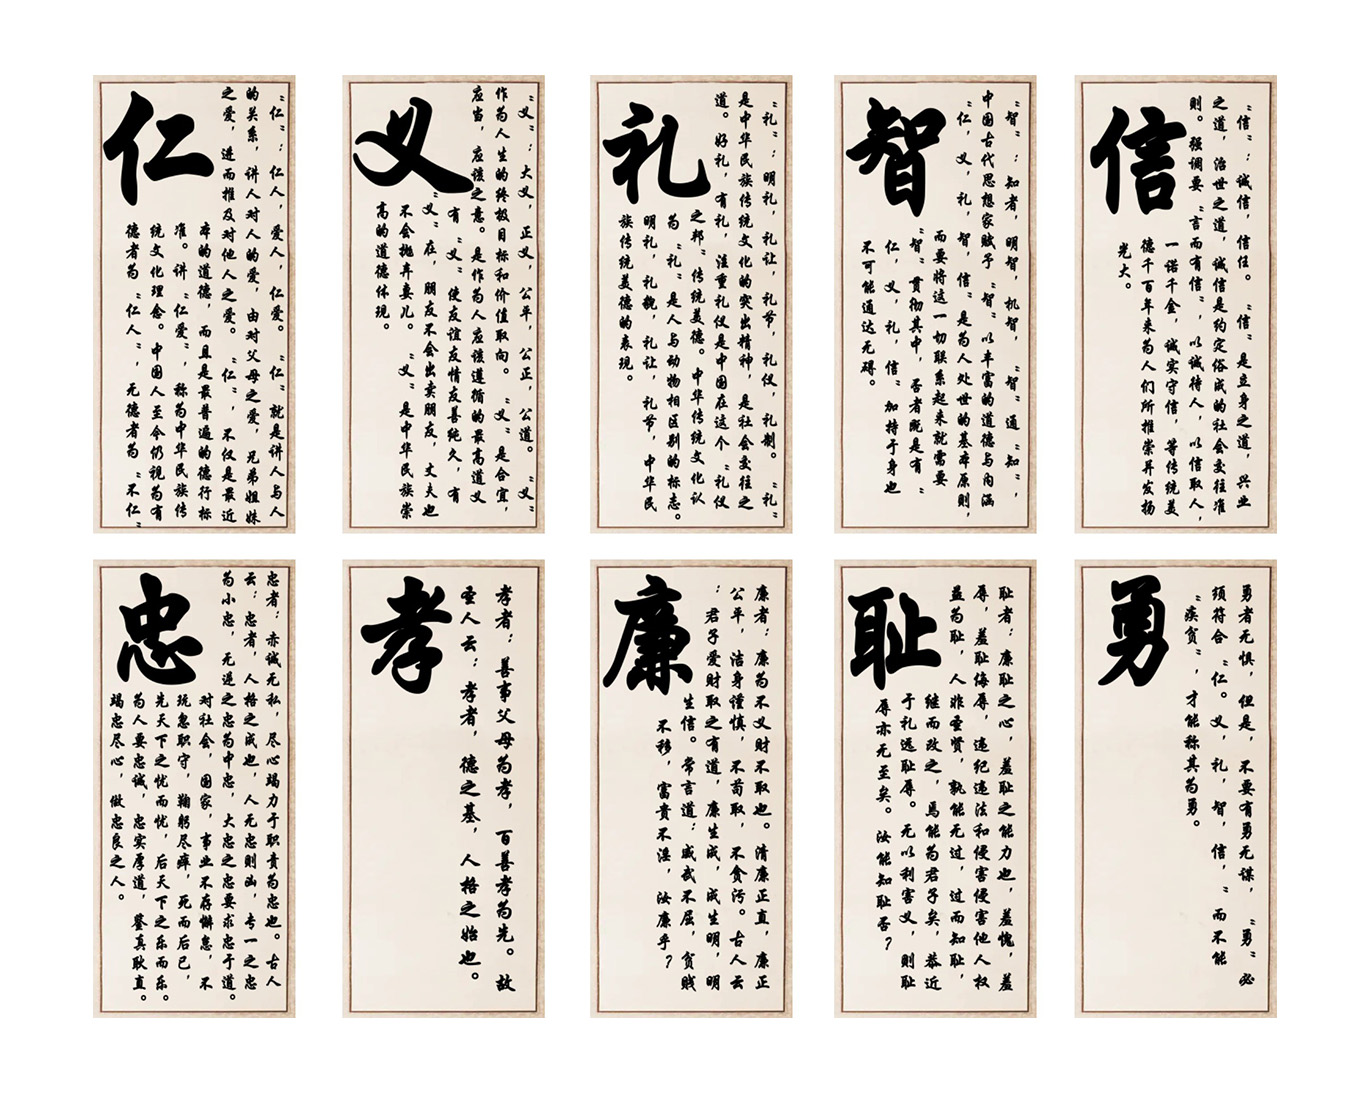 仁
“仁”：仁人，爱人，仁爱。 “仁”就是讲人与人
的关系，讲人对人的爱，由对父母之爱，兄弟姐妹
之爱，进而推及对他人之爱。 “仁”，不仅是最近
本的道德，而且是最普遍的德行标
准。讲“仁爱”，称为中华民族传
统文化理念。中国人至今仍视为有
德者为“仁人”，无德者为“不仁”
义
“义”：大义，正义，公平，公正，公道。 “义”
作为人生的终极目标和价值取向。 “义”是合宜，
应当，应该之意。是作为人应该道循的最高道义
有“义”使友谊友情友善纯久，有
“义”在，朋友不会出卖朋友，丈夫也
不会抛弃妻儿。 “义”是中华民族崇
高的道德体现。
礼
“礼”：明礼，礼让，礼节，礼仪，礼制。 “礼”
是中华民族传统文化的突出精神，是社会交往之
道。好礼，有礼，注重礼仪是中国在这个“礼仪
之邦”传统美德。中华传统文化认
为“礼”是人与动物相区别的标志。
明礼，礼貌，礼让，礼节，中华民
族传统美德的表现。
智
“智”：知者，明智，机智，“智”通“知”，
中国古代思想家赋予“智”以丰富的道德与内涵
“仁，义，礼，智，信”是为人处世的基本原则，
而要将这一切联系起来就需要
“智”贯彻其中，否者既是有“
仁，义，礼，信”加持于身也
不可能通达无碍。
信
“信”：诚信，信任。 “信”是立身之道，兴业
之道，治世之道，诚信是约定俗成的社会交往准
则。强调要“言而有信”，以诚待人，以信取人，
一诺千金，诚实守信，等传统美
德千百年来为人们所推崇并发扬
光大。
忠
忠者：赤诚无私，尽心竭力于职责为忠也。古人
云：忠者，人格之成也，人无忠则凶，专一之忠
为小忠，无逆之忠为中忠，大忠之忠要求忠于道。
对社会，国家，事业不存懈怠，不
玩忽职守，鞠躬尽瘁，死而后已，
先天下之忧而忧，后天下之乐而乐。
为人要忠诚，忠实厚道，鉴真耿直。
竭忠尽心，做忠良之人。
孝
孝者：善事父母为孝，百善孝为先。故
圣人云：孝者，德之基，人格之始也。
廉
廉者：廉为不义财不取也。清廉正直，廉正
公平，洁身谨慎，不苟取，不贪污。古人云
：君子爱财取之有道，廉生威，威生明，明
生信。常言道：威武不屈，贫贱
不移，富贵不淫，汝廉乎？
耻
耻者：廉耻之心，羞耻之能力也，羞愧，羞
辱，羞耻侮辱，违纪违法和侵害侵害他人权
益为耻，人非圣贤，孰能无过，过而知耻，
继而改之，焉能为君子矣，恭近
于礼远耻辱。无以利害义，则耻
辱亦无至矣。汝能知耻否？
勇
勇者无惧，但是，不要有勇无谋，“勇”必
须符合“仁。义，礼，智，信，”而不能
“疾贫”，才能称其为勇。